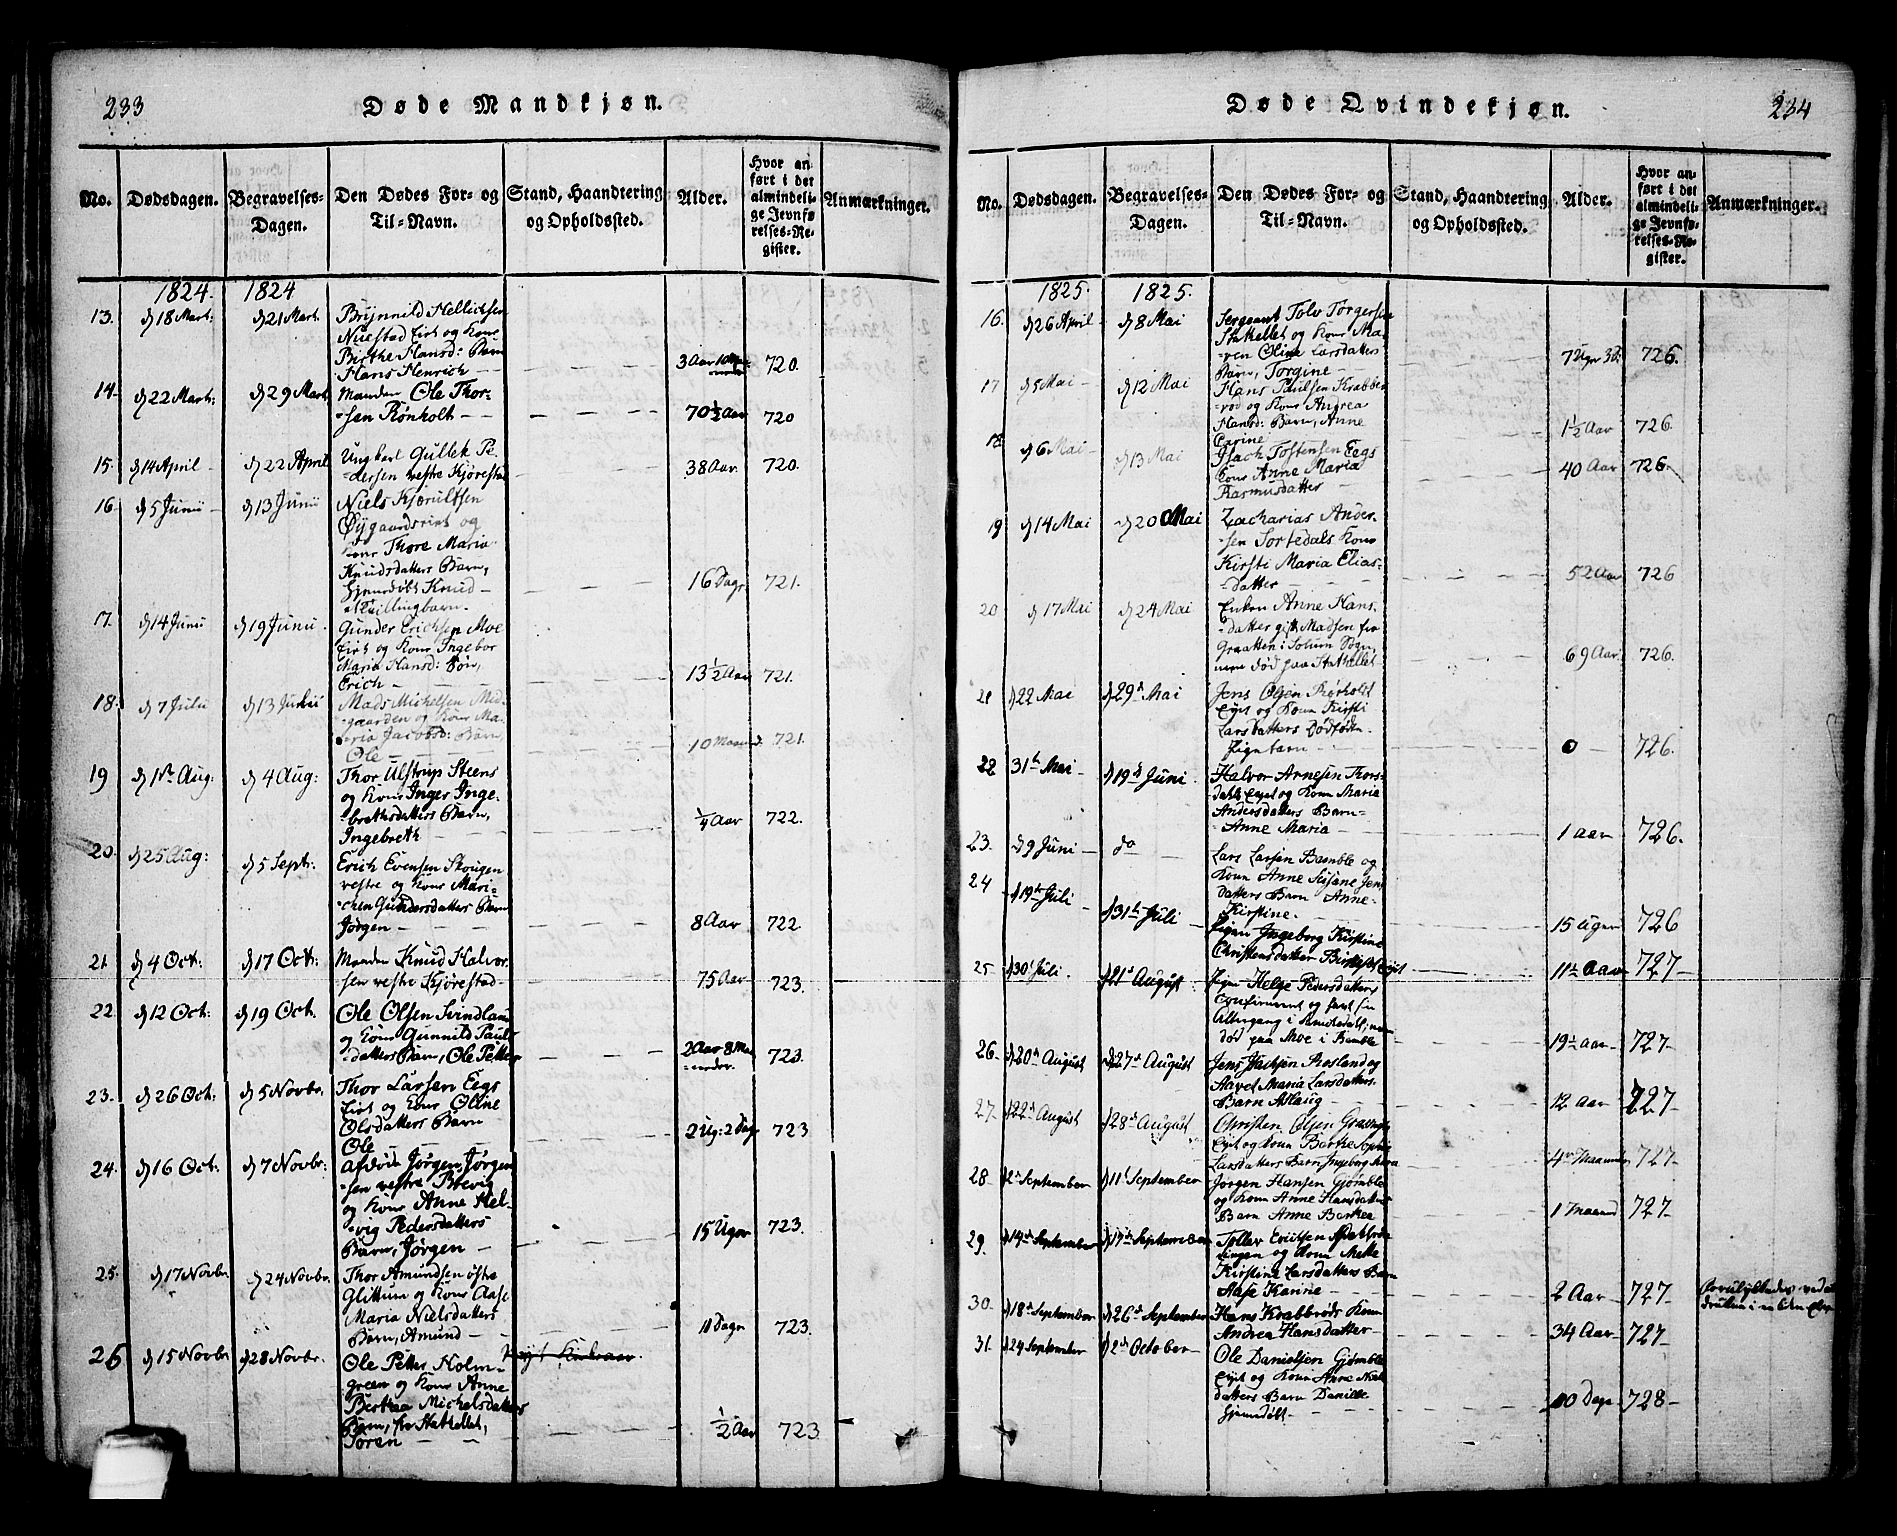 233
Døde Mandkjøn.
No.
Dødsdagen.
Begravelses-
Dagen.
Den Dødes For- og
Til-Navn.
Stand, Haandtering
og Opholdssted.
Alder.
Hvor an-
ført i det
almindeli-
ge Jevnfø
relses-Re-
gister.
Anmærkninger.
1824. 1824
13. d 18 Mart: d 21 Mart.
Hans Henrich 3 Aar 720.
14. d 22 Mart: d 29 Mart Manden Ole Thor-
-sen Rønholt 70½ Aar 720
15. d 14 April d 22 April Ungkarl Gullek Pe-
-dersen vestre Kjørestad 38 Aar 720.
16. d 5 Junii d 13 Junii Niels
Kone Thore Maria
Knudsdatters Barn,
Hjemdøbt Knud 16 Dage 721.
Tvillingbarn.
17. d 14 Junii d 19 Junii Gunder Erichsen Moe
Eiet og Kone Ingebor
Maria Hansd: Søn,
Erich 13½ Aar 721.
18. d 7 Julii d 13 Julii Mads Michelsen Mid-
-gaarden og Kone Ma-
-ria Jacobsd: Barn,
Ole 10 Maaned. 721.
19 d 1ste Aug: d 4 Aug: Thor Ulstrup Steens
og Kone Inger Inge-
brethsdatters Barn,
Ingebreth ¼ Aar 722.
20. d 25 Aug: d 5 Septr: Erich Evensen Skougen
vestre og Kone Mari-
-chen Gundersdatters Barn
Jørgen 8 Aar 722.
21. d 4 Oct: d 17 Oct: Manden Knud Halvor
-sen vestre Kjørestad 75 Aar 723.
22. d 12 Oct: d 19 Oct. Ole Olsen Svindland
og Kone Gunnild Pauls
-datters Barn, Ole Petter 2 Aar 8 723.
23. d 26 Oct: d 5 Novbr. Thor Larsen Eegs
Eiet og Kone Oline
Olsdatters Barn
Ole 2 Ug: 2 Dage 723
24. d 16 Oct: d 7 Novbr: Afdøde Jørgen Jørgen
-sen vestre Brevig
og Kone Anne Hel-
-vig Pedersdatters
Barn, Jørgen 15 Uger 723.
25. d 17 Novbr d 24 Novbr. Thor Amundsen østre
Glittum og Kone Aase
Maria Nielsdatters
Barn, Amund 11 Dage 723.
26 d 15 Novbr d 28 Novbr. Ole Petter Holm-
green og Kone Anne
Berthea Michelsdatters
Barn, fra Stathellet,
Søren ½ Aar 723
234
Døde Qvindekjøn.
No.
Dødsdagen.
Begravelses-
Dagen.
Den Dødes For- og
Til-Navn.
Stand, Haandtering
og Opholdssted.
Alder.
Hvor an-
ført i det
almindeli-
ge Jevnfø-
relses-Re-
gister.
Anmærkninger.
1825. 1825.
16. d 26 April d 8 Mai Sergeant Tolv Torgersen
Stathellet og Kone Ma-
-ren Oline Larsdatters
Barn, Torgine 7 Uger 3 D. 726.
17 d 5 Mai d 12 Mai Hans Paulsen Krabbe-
-rød og Kone Andrea
Hansd: Barn, Anne
Carine 1½ Aar 726.
18. d 6 Mai d 13 Mai Isach Tostensen Eegs
Kone Anne Maria
Rasmusdatter 40 Aar 726.
19 d 14 Mai d 20 Mai Zacharias Ander-
-sen Sortedals Kone
Kirsti Maria Elias-
-datter 52 Aar 726
20 d 17 Mai d 24 Mai Enken Anne Hans-
-datter gift Madsen fra
Graatten i Solum Sogn,
men død paa Stathellet 69 Aar 726.
21 d 22 Mai d 29de Mai Jens Olsen Rørholdt
Eiet og Kone Kirsti
Larsdatters Dødfødte
Pigebarn 0 726.
22 31te Mai d 19de Juni Halvor Arnesen Thors-
dals Eiet og Kone Maria
Andersdatters Barn
Anne Maria 1 Aar 726.
23. d 9 Juni do Lars Larsen Bamble og
Kone Anne Jens-
datters Barn Anne
Kirstine 15 Uger 726
24 d 19de Juli d 31te Juli Pigen Ingeborg Kirstine
Christensdatter 11½ Aar 727
25. d 30te Juli. d 21de August Pigen Helge Pedersdatter
død paa Moe i Bamble 19½ Aar 727
26. d 20de August d 27de August Jens Isachsen Rosland og
Aavet Maria Larsdatters
Barn Aslaug 12 Aar 727
27. d 22de August d 28de August Christen Olsen
Eiet og Kone Berthe Sophie
Larsdatters Barn Ingeborg 4re Maaneder 727
28 d 2den September d 11te September Jørgen Hansen Gjømble
og Kone Anne Hansdatters
Barn Anne Berthea 1 Maaned 727
29. d 14de September d 17de September Tollev
og Kone Mette
Kirstine Larsdatters Barn
Aase Karine 2 Aar 727
30. d 18de September d 26de September Hans Krabberøds Kone
Andrea Hansdatter 34 Aar 727
31. d 24 September d 2den October Ole Danielsen Gjømble
Eiet og Kone Anne Niels-
datters Barn Danille
hjemdøbt 10 Dage 728